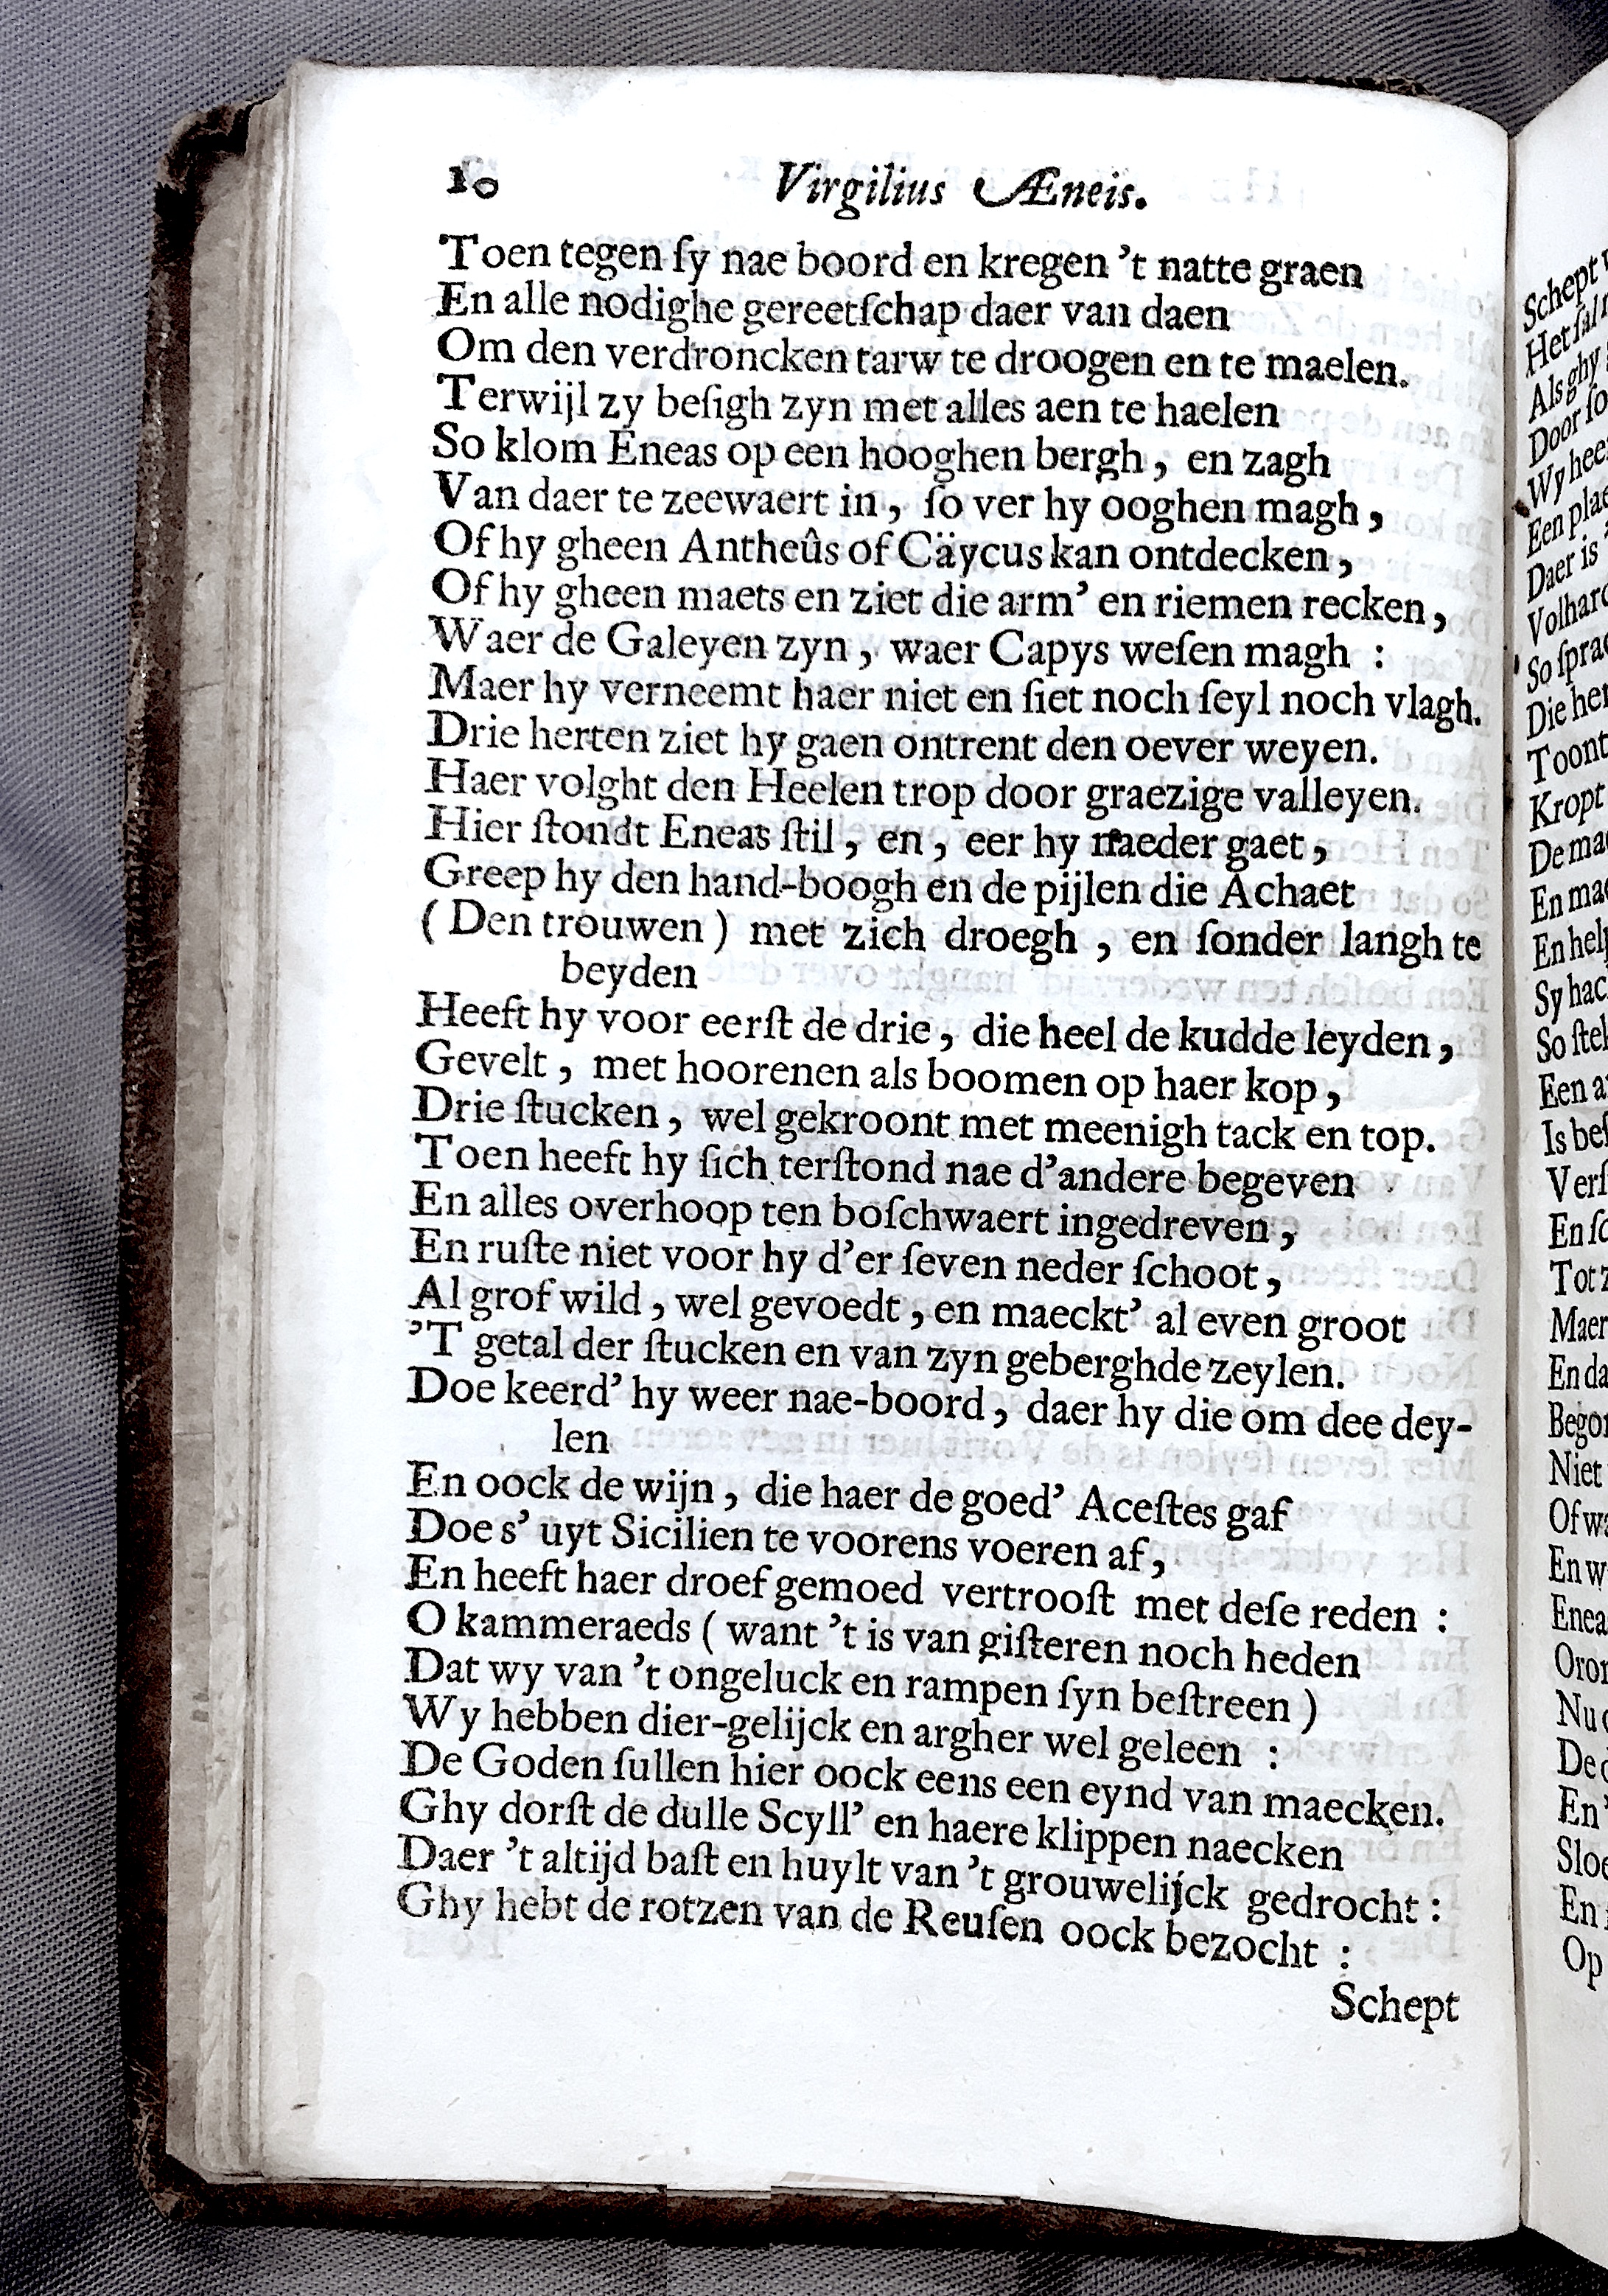 10 Virgilius Æneis.
Toen tegen ſy nae boord en kregen ’t natte graen
En alle nodighe gereetſchap daer van daen
Om den verdroncken tarw te droogen en te maelen.
Terwijl zy beſigh zyn met alles aen te haelen
So klom Eneas op een hooghen bergh, en zagh
Van daer te zeewaert in, ſo ver hy ooghen magh,
Of hy gheen Antheûs of Cäycus kan ontdecken,
Of hy gheen maets en ziet die arm’ en riemen recken,
Waer de Galeyen zyn, waer Capys weſen magh :
Maer hy verneemt haer niet en ſiet noch ſeyl noch vlagh.
Drie herten ziet hy gaen ontrent den oever weyen.
Haer volght den Heelen trop door graezige valleyen.
Hier ſtondt Eneas ſtil, en, eer hy naeder gaet,
Greep hy den hand-boogh en de pijlen die Achaet
( Den trouwen ) met zich droegh, en ſonder langh te
beyden
Heeft hy voor eerſt de drie, die heel de kudde leyden,
Gevelt, met hoorenen als boomen op haer kop,
Drie ſtucken, wel gekroont met meenigh tack en top.
Toen heeft hy ſich terſtond nae d’andere begeven
En alles overhoop ten boſchwaert ingedreven,
En ruſte niet voor hy d’er ſeven neder ſchoot,
Al grof wild, wel gevoedt, en maeckt’ al even groot
’T getal der ſtucken en van zyn geberghde zeylen.
Doe keerd’ hy weer nae-boord, daer hy die om dee dey-
len
En oock de wijn, die haer de goed’ Aceſtes gaf
Doe s’ uyt Sicilien te voorens voeren af,
En heeft haer droef gemoed vertrooſt met deſe reden :
O kammeraeds ( want ’t is van giſteren noch heden
Dat wy van ’t ongeluck en rampen ſyn beſtreen )
Wy hebben dier-gelijck en argher wel geleen :
De Goden ſullen hier oock eens een eynd van maecken.
Ghy dorſt de dulle Scyll’ en haere klippen naecken
Daer ’t altijd baſt en huylt van ’t grouwelijck gedrocht :
Ghy hebt de rotzen van de Reuſen oock bezocht :
Schept
Schept
Het ſal
Als ghy
Door
Wy
Een
Daer is
Volhard
So
Die
Toont
Kropt
De
En
En
Sy
So
Een
Is

En
Tot
Maer
En
Begon
Niet
Of
En

Nu
De
En

En
Op